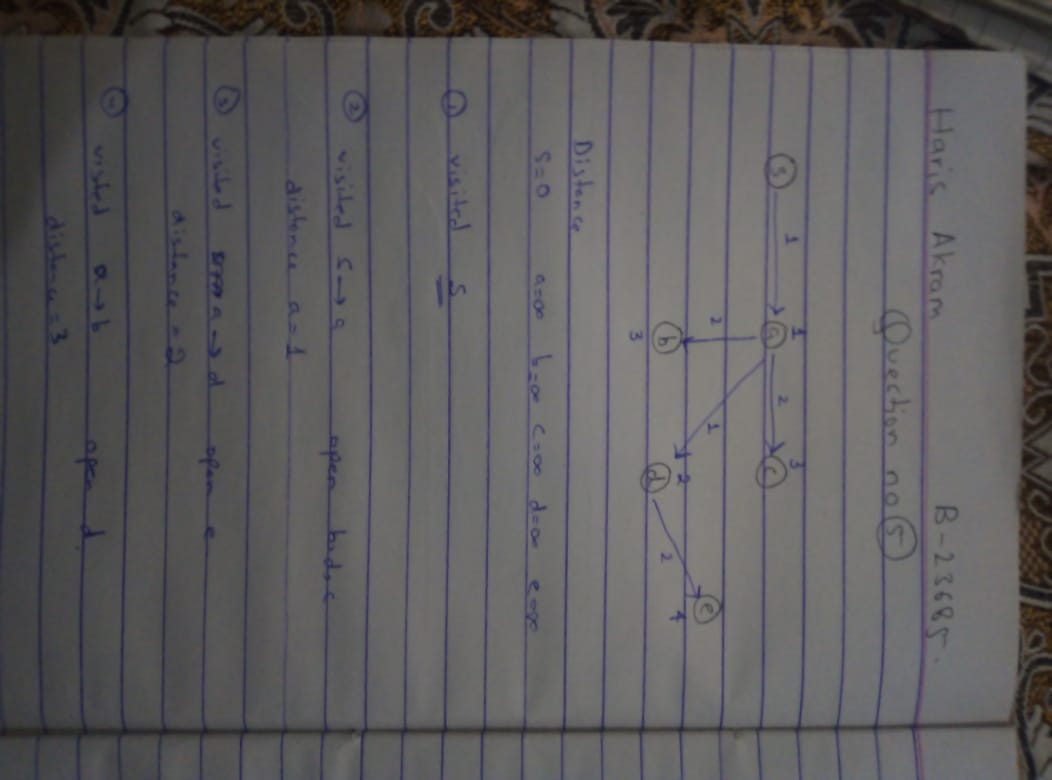 Haris Akram B-23685.
Quection no 5
s 1 a 1 2 c 3
2 1
b 3 d 2 2 e 4
Distance
s=0 a=∞ b=∞ c=∞ d=∞ e=∞
① visited s
② visited s→a open b,d,c
distance a=1
③ visited a→d open e
distance = 2
④ visted a→b open d.
distance = 3